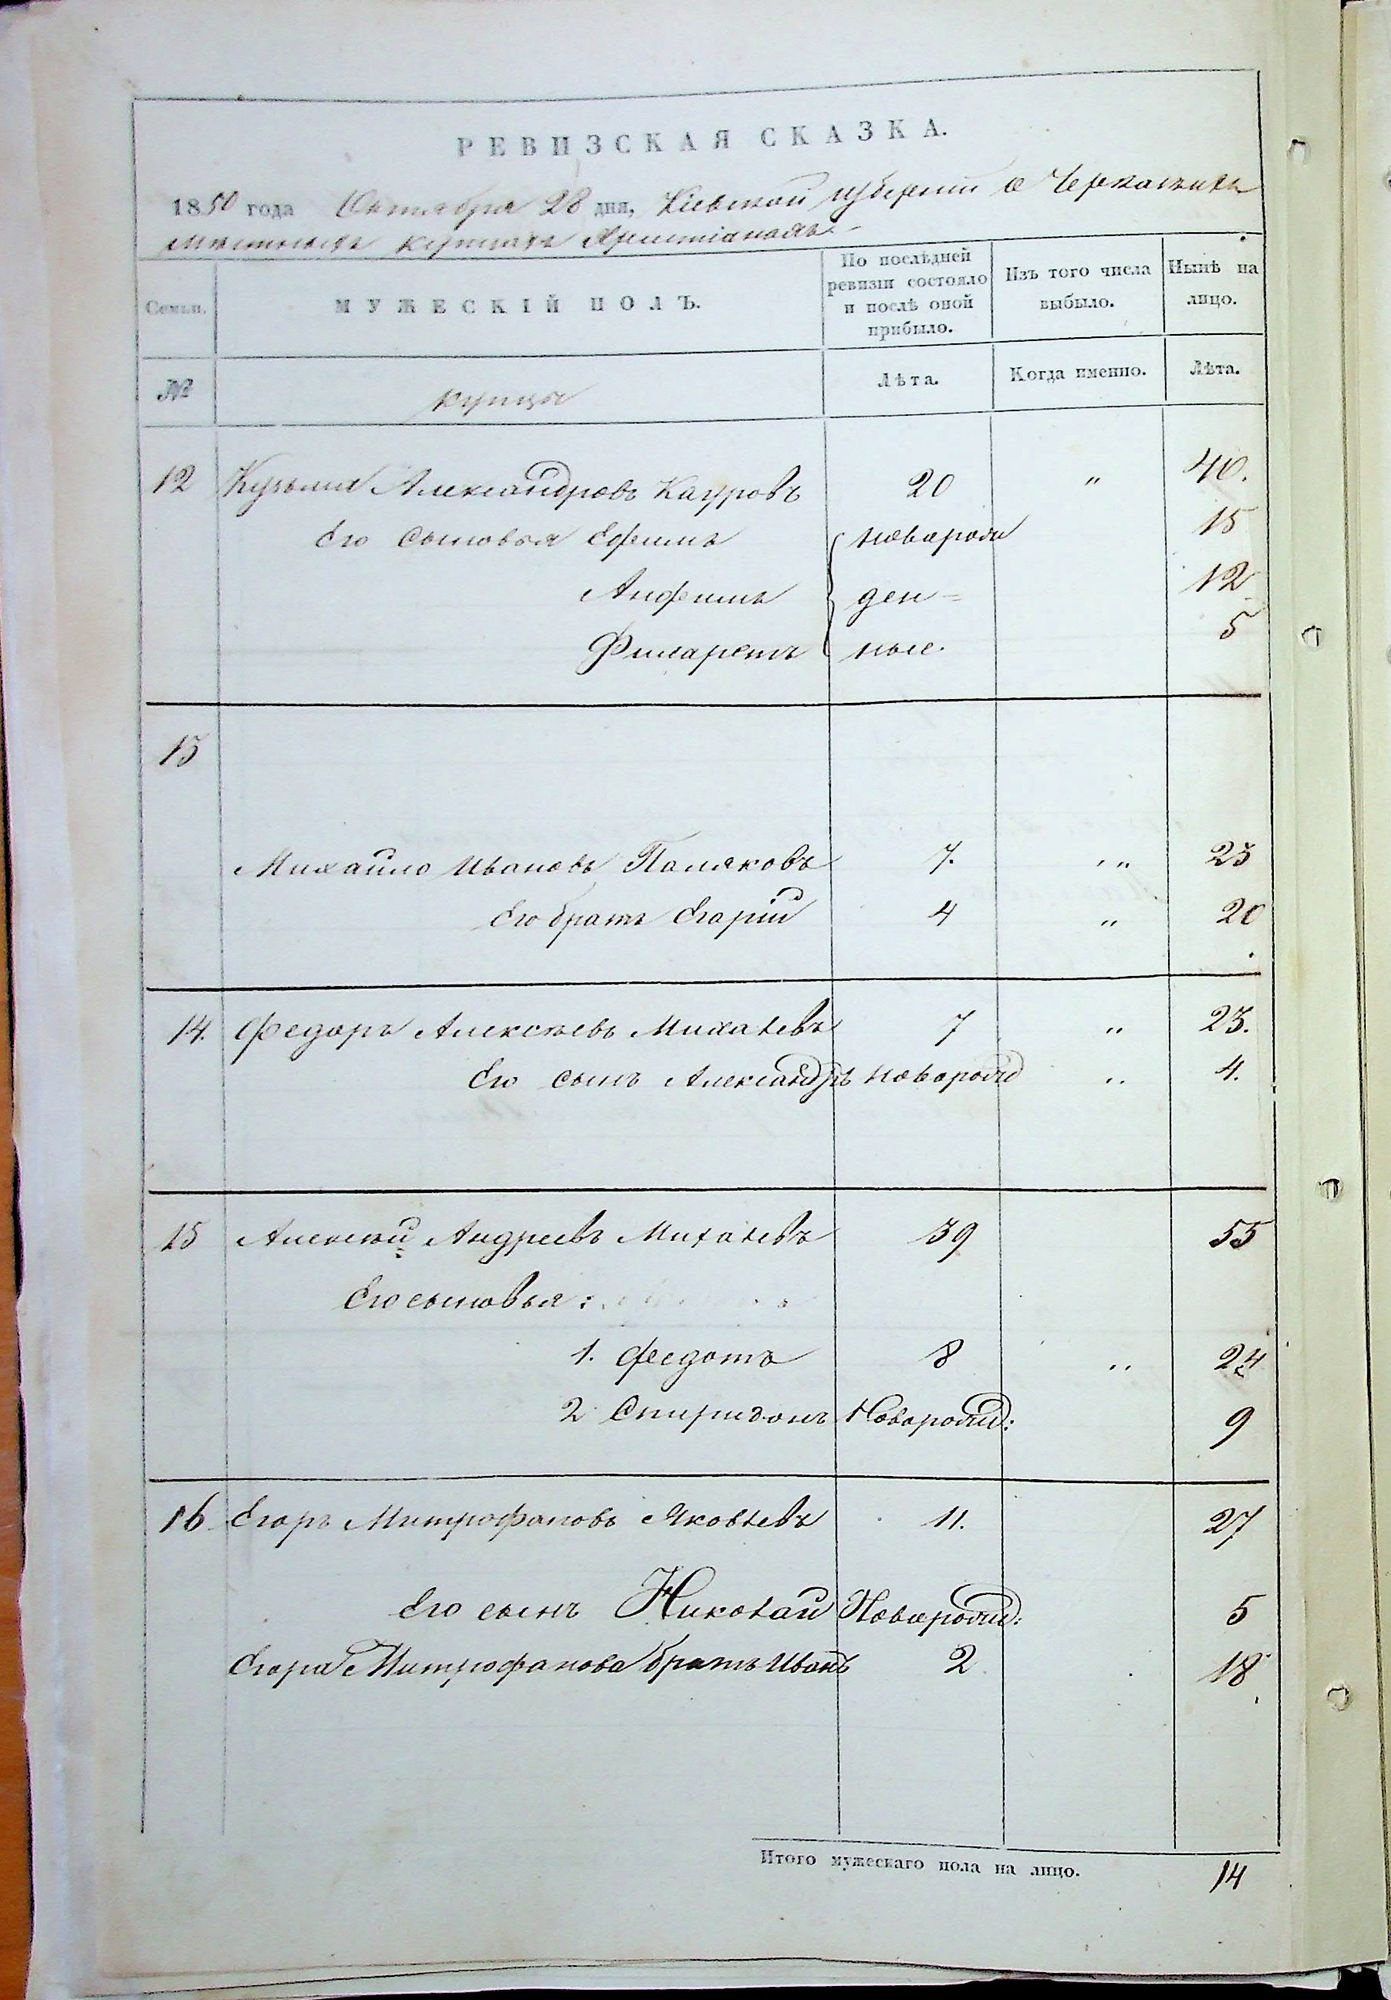 РЕВИЗСКАЯ СКАЗКА.
1850 года Октября 28 дня, Кіевской губерніи о Черкаскихъ
мѣстныхъ купцахъ Христіанахъ.
Семьи.
МУЖЕСКІЙ ПОЛЪ.
По послѣдней ревизіи состояло и послѣ оной прибыло.
Изъ того числа выбыло.
Нынѣ на лицо.
№ купцы Лѣта. Когда именно. Лѣта.
12 Кузьма Александровъ Кауровъ 20 " 40.
Его сыновья Ефимъ новорож 15
Анфимъ ден= 12
Филаретъ ные. 5
13
Михайло Ивановъ Поляковъ 7. " 23
Его братъ Егорій 4 " 20
14. Федоръ Алексѣевъ Михалевъ 7 " 23.
Его сынъ Александръ новорожд " 4.
15 Алексѣй Андреевъ Михалевъ 39 55
Его сыновья:
1. Федотъ 8 " 24
2 Спиридонъ Новорожд: 9
16 Егоръ Митрофановъ Яковлевъ 11. 27
Его сынъ Николай Новорожд: 5
Егора Митрофанова братъ Иванъ 2 18
Итого мужескаго пола на лицо. 14